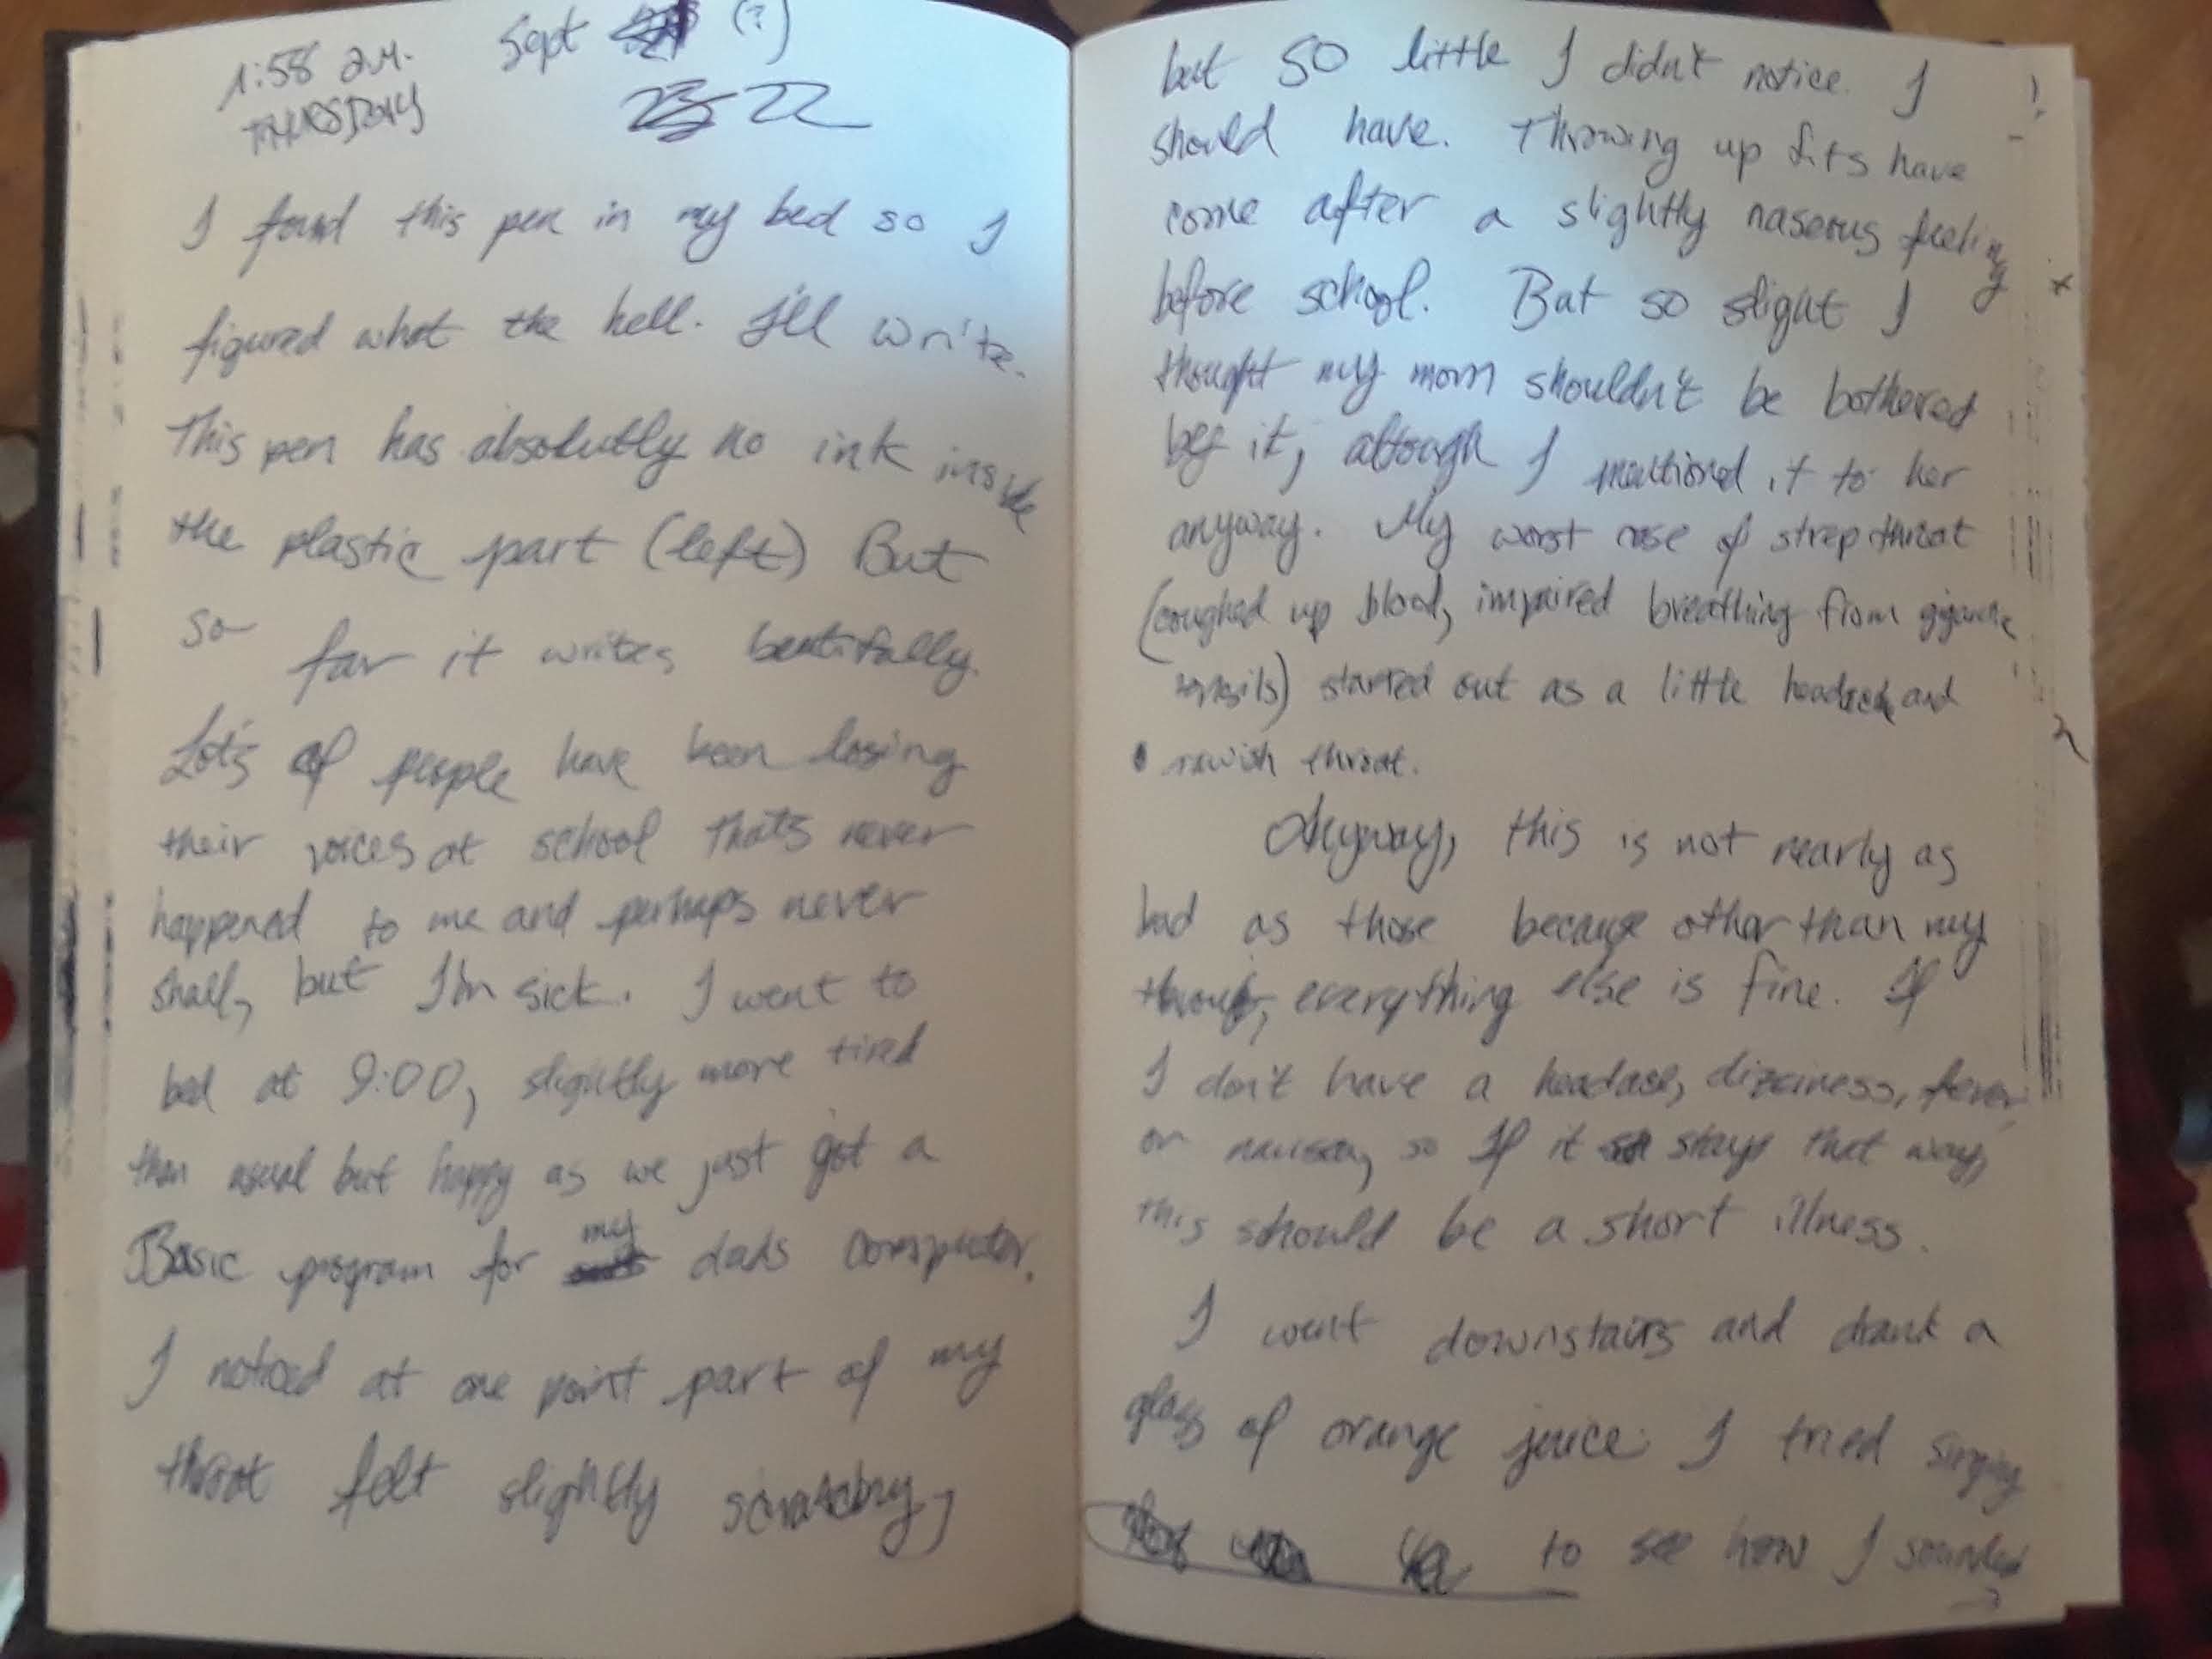 1:58 a.m. Sept (?)
THURSDAY 22
I found this pen in my bed so I
figured what the hell. I'll write.
This pen has absolutly no ink inside
the plastic part (left) But
so far it writes beutifully.
Lots of people have been losing
their voices at school thats never
happened to me and perhaps never
shall, but I'm sick. I went to
bed at 9:00, slightly more tired
than usual but happy as we just got a
Basic program for my dads computer.
I noticed at one point part of my
throat felt slightly scratchy,
but SO little I didn't notice. I
should have. Throwing up fits have
come after a slightly naseous feeling
before school. But so slight I
thought my mom shouldn't be bothered
by it, altough I mentioned it to her
anyway. My worst case of strep throat
(coughed up blood, impaired breathing from gigantic
tonsils) started out as a little and
rawish throat.
Anyway, this is not nearly as
bad as those because other than my
throat, everything else is fine. If
I don't have a headase, dizziness, fever
or nausea, so If it stays that way,
this should be a short illness.
I went downstairs and drank a
glass of orange juice. I tried singing
to see how I sounded